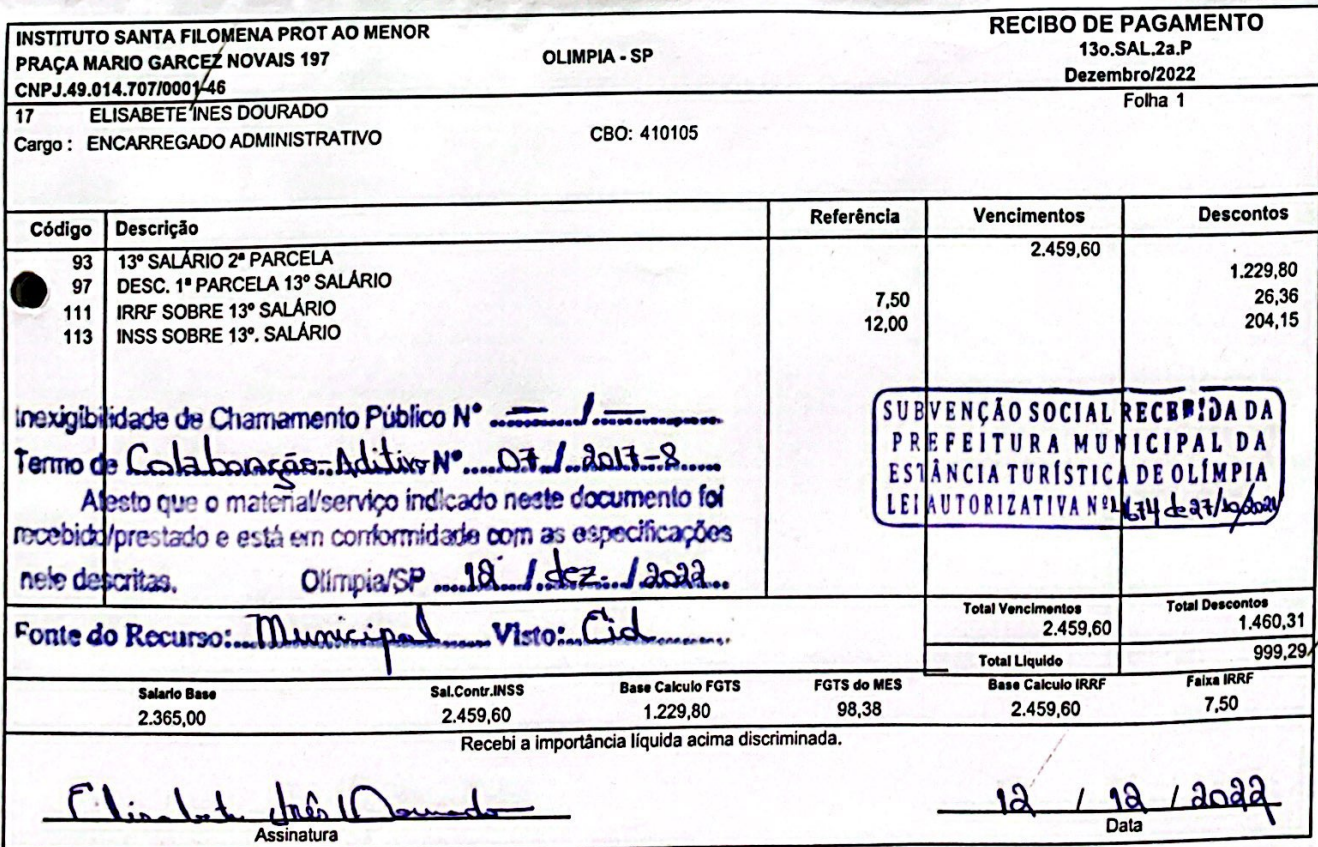 INSTITUTO SANTA FILOMENA PROT AO MENOR
PRAÇA MARIO GARCEZ NOVAIS 197
CNPJ.49.014.707/0001-46
OLIMPIA - SP
RECIBO DE PAGAMENTO
13o.SAL.2a.P
Dezembro/2022
Folha 1
17 ELISABETE INES DOURADO
Cargo : ENCARREGADO ADMINISTRATIVO CBO: 410105
Código Descrição Referência Vencimentos Descontos
93 13º SALÁRIO 2ª PARCELA 2.459,60
97 DESC. 1ª PARCELA 13º SALÁRIO 1.229,80
111 IRRF SOBRE 13º SALÁRIO 7,50 26,36
113 INSS SOBRE 13º. SALÁRIO 12,00 204,15
Inexigibilidade de Chamamento Público Nº — / —
Termo de Colaboração-Aditivo Nº 07 / 2017-8
Atesto que o material/serviço indicado neste documento foi
recebido/prestado e está em conformidade com as especificações
nele descritas. Olímpia/SP 12 / dez. / 2022
Fonte do Recurso: Municipal Visto: Cid
SUBVENÇÃO SOCIAL RECEBIDA DA
PREFEITURA MUNICIPAL DA
ESTÂNCIA TURÍSTICA DE OLÍMPIA
LEI AUTORIZATIVA Nº 4674 de 27/10/2021
Total Vencimentos Total Descontos
2.459,60 1.460,31
Total Liquido 999,29
Salario Base Sal.Contr.INSS Base Calculo FGTS FGTS do MES Base Calculo IRRF Faixa IRRF
2.365,00 2.459,60 1.229,80 98,38 2.459,60 7,50
Recebi a importância líquida acima discriminada.
Elisabete Inês Dourado
Assinatura
12 / 12 / 2022
Data